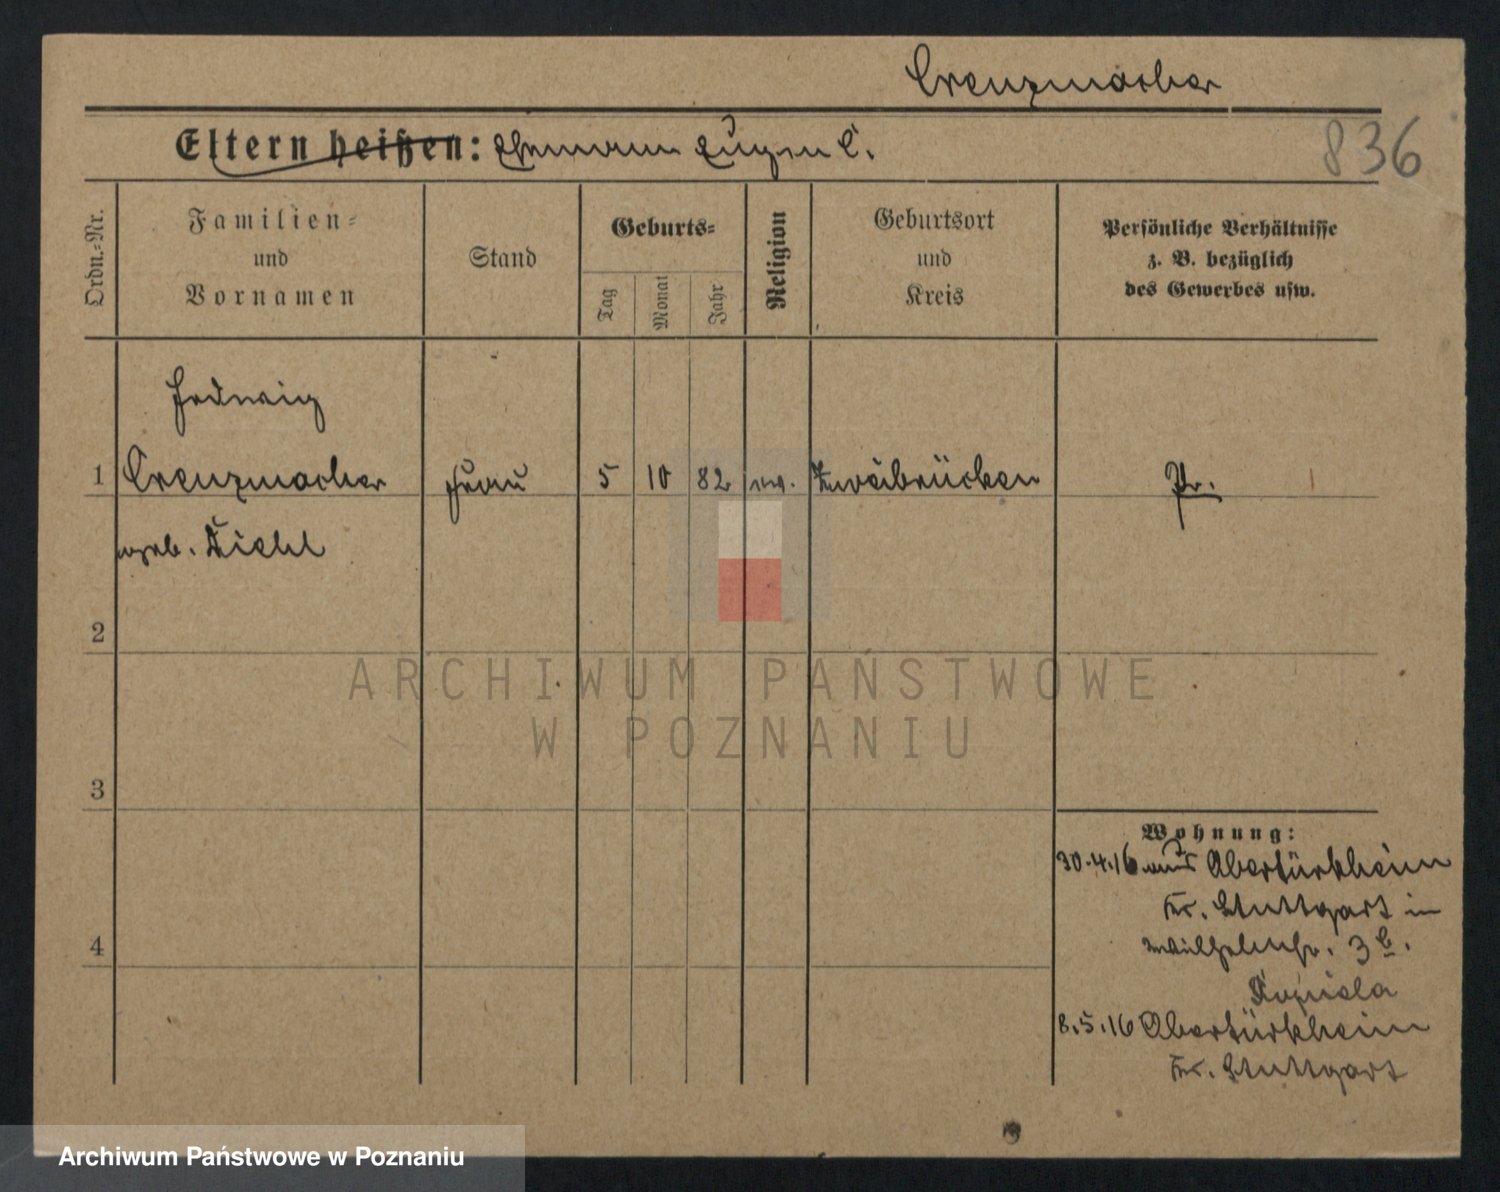 Creuzmacher
Eltern heißen: Ehemann Eugen C.
836
Ordn.-Nr.
Familien-
und
Vornamen
Stand
Geburts-
Tag
Monat
Jahr
Religion
Geburtsort
und
Kreis
Persönliche Verhältnisse
z. B. bezüglich
des Gewerbes usw.
Hedwig
1 Creuzmacher Frau 5 10 82 ev. Zweibrücken Pr.
geb. Diehl
2
3
4
Wohnung:
30.4.16 aus Obertürkheim
Kr. Stuttgart in
Wilhelmstr. 3 b.
8.5.16 Obertürkheim
Kr. Stuttgart
ARCHIWUM PAŃSTWOWE
W POZNANIU
Archiwum Państwowe w Poznaniu